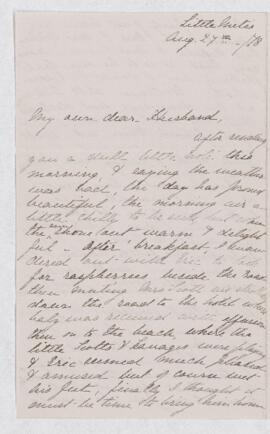 Little Metis
Aug. 27th /78
My own dear Husband,
After sending
you a dull little note this
morning, & saying the weather
was bad, the day has proved
beautiful, the morning air a
little chilly to be sure, but
the shone out warm & delight
ful - After breakfast I wan
dered out with Eric to
for raspberries beside the road
then meeting Mrs Scott we
down the road to the hotel where
baby was
then on to the beach where the
little Scotts & Savages were playing
& Eric seemed much pleased
& amused but of course wet
his feet, finally I thought it
must be time to bring him home